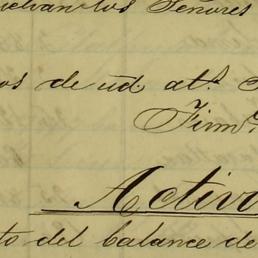 los Señores
os de ud. at.s
Firm
Activo
to del balance de